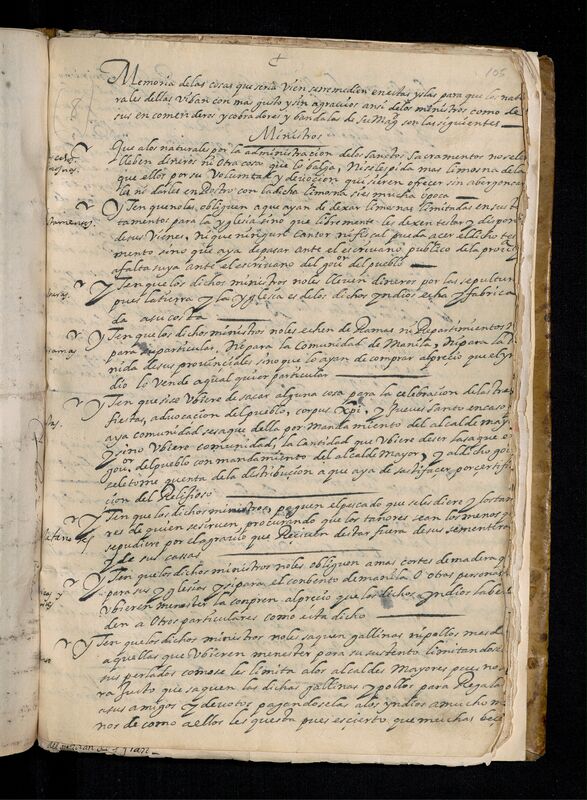 105
Memoria de las cosas que seria vien se remedien en estas yslas para que los natu
rales dellas viban con mas gusto y sin agravios ansi de los ministros como de
sus encomenderos y cobradores y bandalas de Su Magd son las siguientes
Ministros
Que a los naturales por la administracion de los sanctos Sacramentos no se les
lleben dineros ni otra cosa que lo balga, Ni se les pida mas limosna de la
que ellos por su Voluntad y devocion quisieren ofrecer sin abergonçar
les ni darles en Rostro con la dicha limosna si es mucha o poca
Yten que no les obliguen a que ayan de dexar limosnas limitadas en sus tes
tamentos para la Yglesia sino que libremente les dexen testar y disponer
de sus vienes, ni que ningun Cantor ni fiscal pueda acer el dicho testa
mento sino que aya de pasar ante el escrivano publico de la provincia y
a falta suya ante el escrivano del gour del pueblo
Yten que los dichos ministros no les lleven dineros por las sepulturas
pues la tierra y la Yglesia es de los dichos yndios echa y fabricada
da a su costa
Yten que los dichos ministros no les echen de Ramas ni Repartimientos
para su particular, Ni para la Comunidad de Manila, Ni para la
nida de sus provinciales sino que lo ayan de comprar al precio que el yn
dio lo vende a qualquier particular
Yten que si se Vbiere de sacar alguna cosa para la celebracion de las tres
fiestas, advocacion del pueblo, corpus Xpi, y Jueves Santo en caso que
aya comunidad se saque della por mandamiento del alcalde mayor
y si no Vbiere comunidad, la Cantidad que Vbiere de ser la saque el
gour del pueblo con mandamiento del alcalde Mayor, y al dicho gour
se le tome quenta de la distribucion a que aya de satisfacer por certifica
cion del Religioso
Yten que los dichos ministros paguen el pescado que se les diere y los tano
res de quien se sirven, procurando que los tanores sean los menos que
se pudiere por el agravio que Reciben de estar fuera de sus sementeras
y de sus cassas
Yten que los dichos ministros no les obliguen a mas cortes de madera que
para sus Yglesias y si para el conbento de manila o otras personas
Vbieren menester la compren al precio que los dichos Yndios la ben
den a otros particulares como esta dicho
Yten que los dichos ministros no les saquen gallinas ni pollos mas de
aquellas que Vbieren menester para su sustento limitandose
sus perlados como se les limita a los alcaldes Mayores pues no
ra Justo que saquen las dichas gallinas y pollos para Regalar
a sus amigos y devotos pagandoselas a los yndios a mucho me
nos de como a ellos les questa pues es cierto que muchas bece